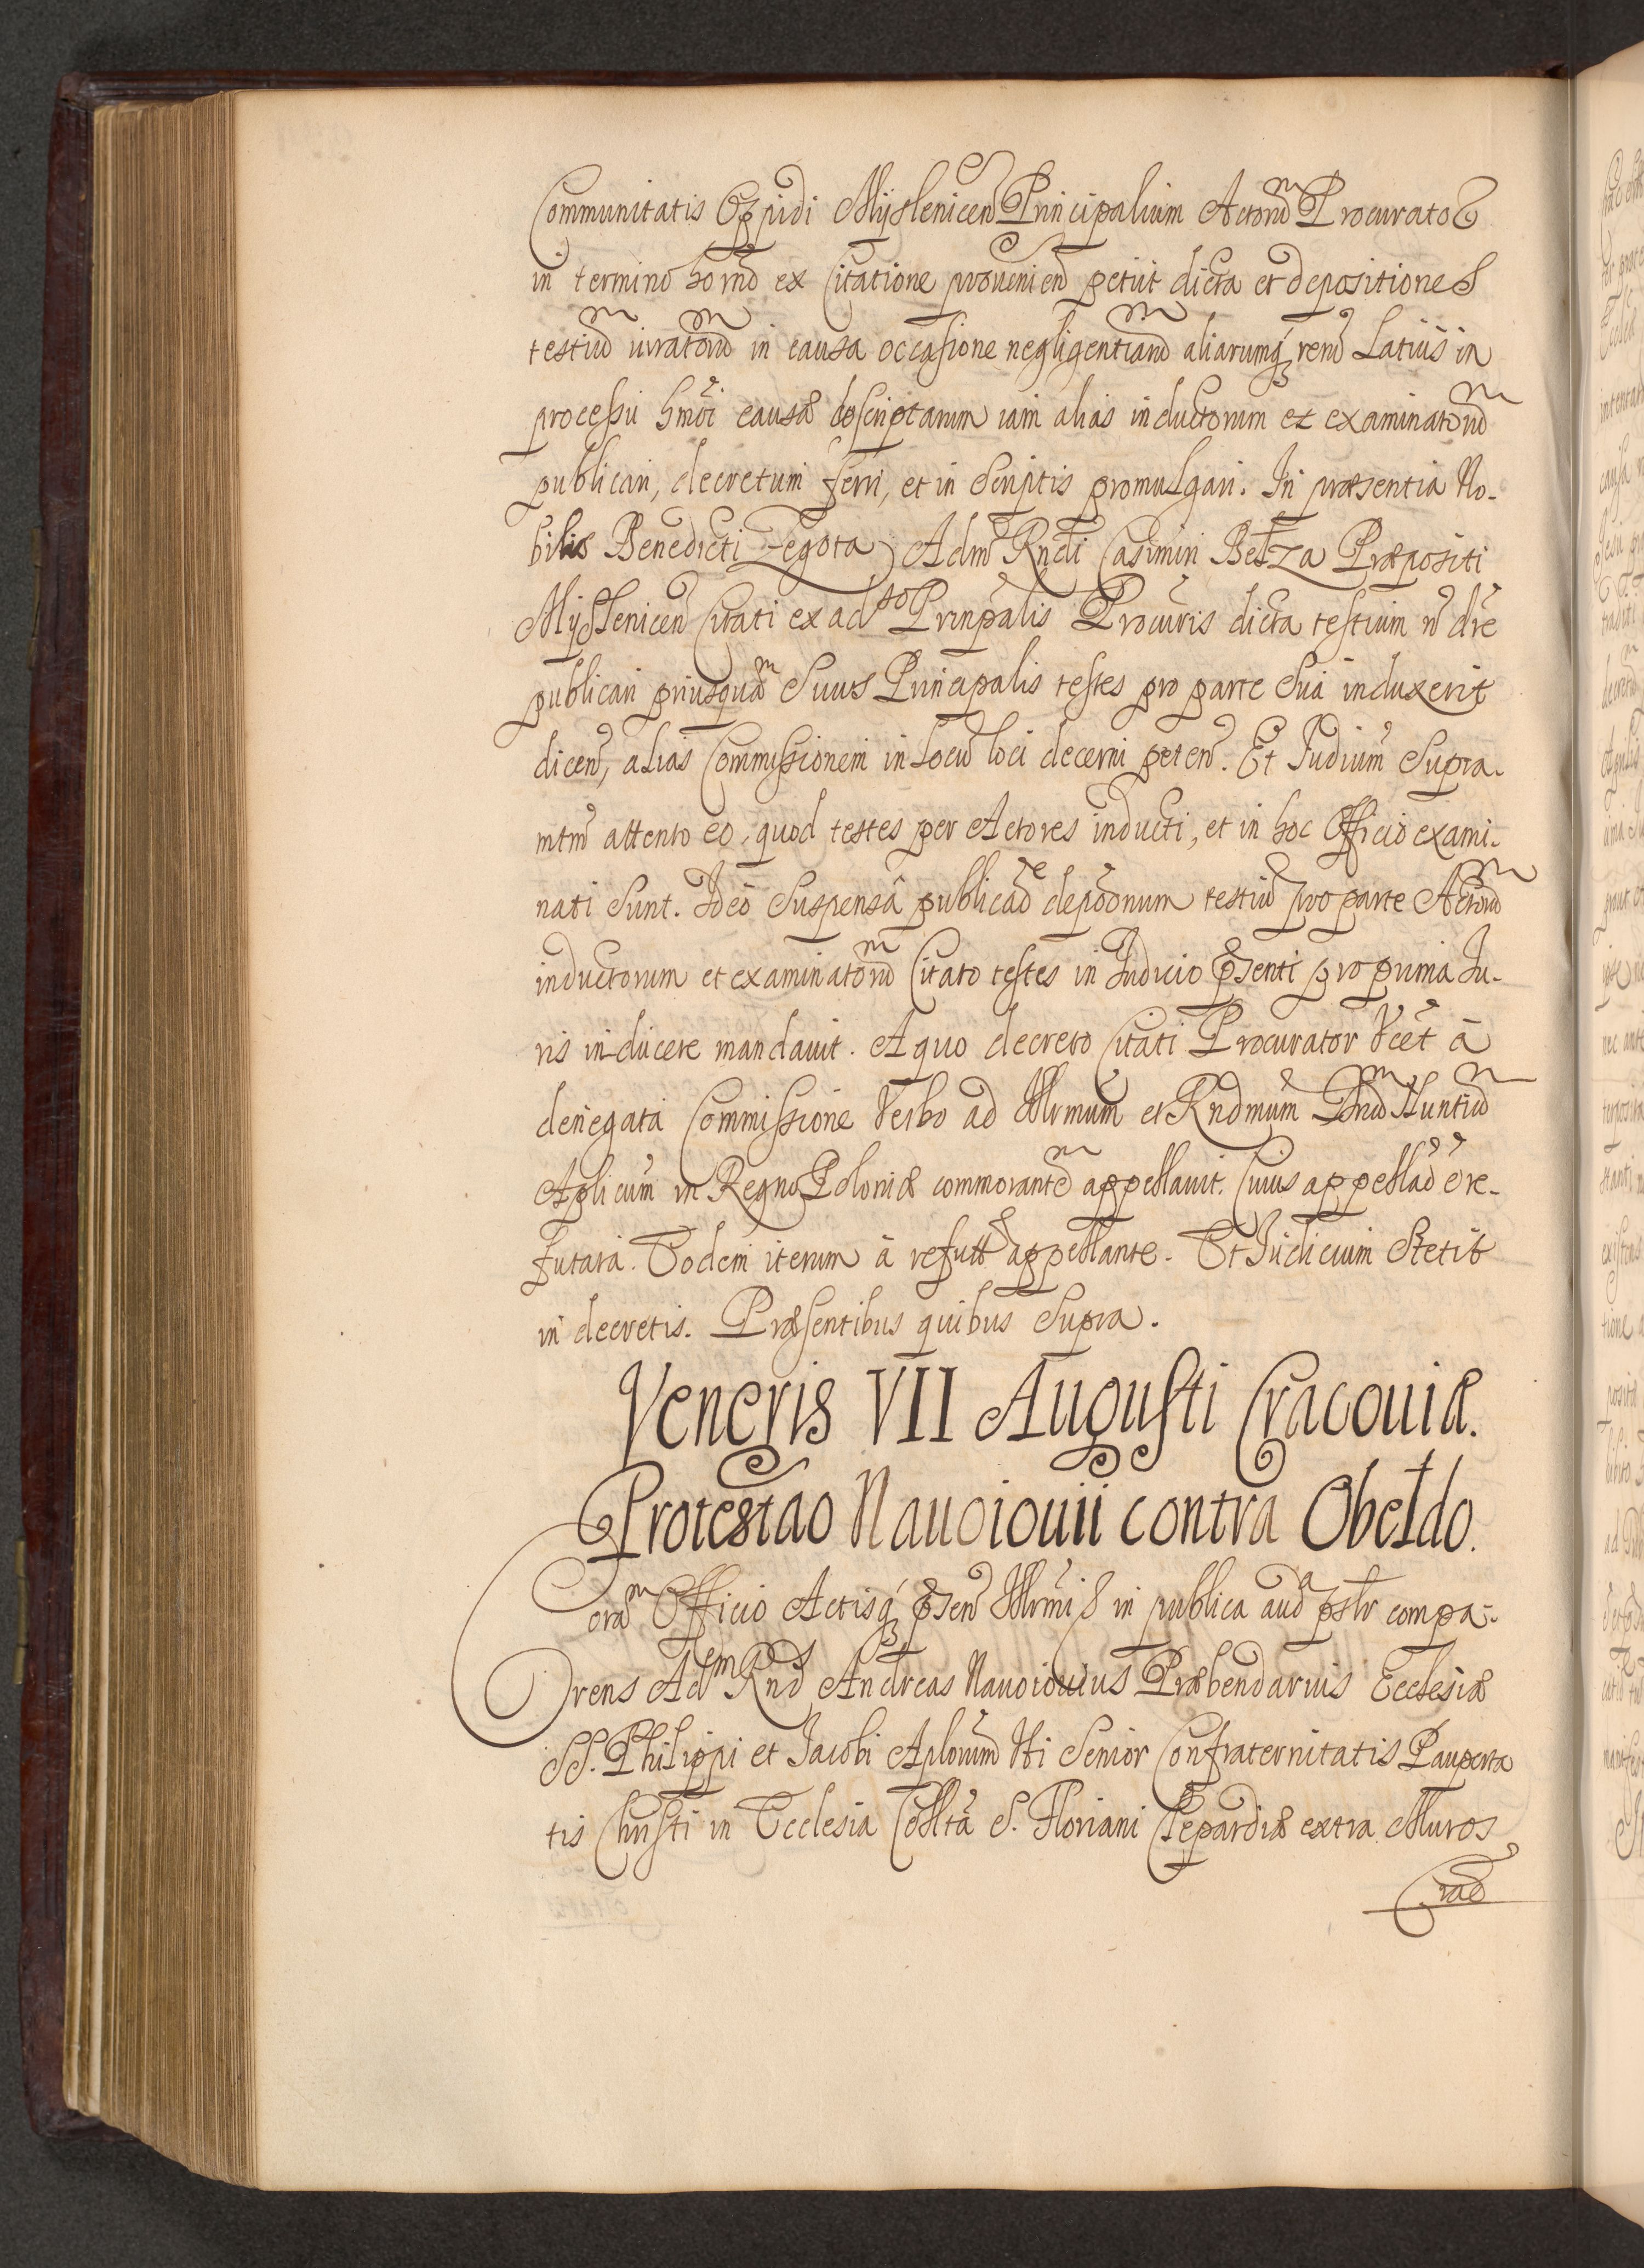 Communitatis Oppidi Myslenicen̄ Principalium Actorū Procurator
in termino hornō ex Citatione provenien̄ petiit dicta et depositiones
testiū iuratorū in causa occasione negligentiarū aliarumq́ rerū Latius in
processu hmōi causæ descriptarum iam alias inductorum et examinatorū
publicari, decretum ferri, et in Scriptis promulgari. In præsentia No-
bilis Benedicti Zegota Adm̄ Rndi Casimiri Betza Præpositi
Myslenicen̄ Citati ex adso Prinpalis Procuris dicta testium n̄ dre
publicari priusquā Suus Principalis testes pro parte Sua induxerit
dicen̄, alias Commissionem in Locū loci decerni peten̄. Et Judium̄ Supra-
mtm̄ attento eo, quod testes per Actores inducti, et in hoc Officio exami-
nati Sunt. Ideo Suspensâ publicaōe depoōnum testiū pro parte Actorū
inductorum et examinatorū Citato testes in Iudicio p̄senti pro prima Ju-
ris inducere mandavit. A quo decreto Citati Procurator Vcēt à
denegata Commissione Verbo ad Illrmum et Rndmum Dnū Nuntiū
Aplicum in Regno Poloniæ commorantē appellavit. Cuius appellaō ē re-
futata. Eodem iterum à refutt appellante. Et Iudicium Stetit
in decretis. Præsentibus quibus Supra.
Veneris VII Augusti Cracoviæ.
Protestao Navoiovii contra Obeldo.
Corā Officio Actisq́ p̄sen̄ Illrmi S in publica aud̄ p̄str compa-
rens Adm Rnd Andreas Navoiovius Præbendarius Ecclesiæ
SS. Philippi et Jacobi Aplorum Ili Senior Confraternitatis Pauperta
tis Christi in Ecclesia Collta S. Floriani Clepardiæ extra Muros
Crac̄